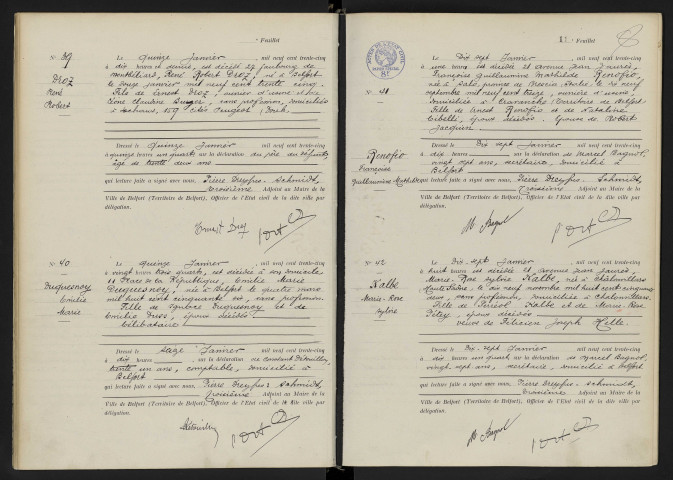 Feuillet
N° 39
DROZ
René
Robert
Le quinze Janvier, mil neuf cent trente-cinq
à dix heures et demie, est décédé 23 faubourg de
Montbéliard, René Robert Droz, né à Belfort
le douze janvier mil neuf cent trente cinq.
Fils de Ernest Droz, ouvrier d'usine et de
sans profession, domiciliés
Cités Peugeot
Dressé le Quinze Janvier, mil neuf cent trente-cinq
à quinze heures un quart sur la déclaration du père du défunt
âgé de trente deux ans
qui lecture faite a signé avec nous, Pierre Dreyfus-Schmidt,
Troisième Adjoint au Maire de la
Ville de Belfort (Territoire de Belfort), Officier de l'Etat civil de la dite ville par
délégation.
Ernest Droz
N° 40
Duquesnoy
Emilie
Marie
Le Quinze Janvier, mil neuf cent trente-cinq
à vingt heures trois quarts, est décédée à son domicile
11 Place de la République, Emilie Marie
Duquesnoy, née à Belfort le quatre mars
mil huit cent cinquante six, sans profession
Fille de Duquesnoy et de
Emilie époux décédés
Célibataire
Dressé le seize Janvier, mil neuf cent trente-cinq
à dix heures sur la déclaration de Constant
trente un ans, comptable, domicilié à
Belfort
qui lecture faite a signé avec nous, Pierre Dreyfus-Schmidt,
Troisième Adjoint au Maire de la
Ville de Belfort (Territoire de Belfort), Officier de l'Etat civil de la dite ville par
délégation.
11 Feuillet
N° 41
Renofio
Françoise
Guillaumine Mathilde
Le Dix sept Janvier, mil neuf cent trente-cinq
à une heure est décédée avenue Jean Jaurès,
Françoise Guillaumine Mathilde Renofio,
née à Salo, province de Brescia Italie, le
septembre mil neuf cent treize, ouvrière d'usine,
domiciliée à Cravanche (Territoire de Belfort)
Fille de Ernest Renofio et de Nataline
Cibelli, époux décédés. Epouse de Robert
Jacquin
Dressé le Dix sept Janvier, mil neuf cent trente-cinq
à dix heures sur la déclaration de Marcel Bagnol,
vingt sept ans, secrétaire, domicilié à
Belfort
qui lecture faite a signé avec nous, Pierre Dreyfus-Schmidt,
Troisième Adjoint au Maire de la
Ville de Belfort (Territoire de Belfort), Officier de l'Etat civil de la dite ville par
délégation.
M Bagnol
N° 42
Kalbe
Marie-Rose
Sylvie
Le Dix-sept Janvier, mil neuf cent trente-cinq
à huit heures est décédée avenue Jean Jaurès,
Marie Rose Sylvie Kalbe, née à Châlonvillars
Haute Saône, le dix neuf novembre mil huit cent cinquante
deux, sans profession, domiciliée à Châlonvillars.
Fille de Kalbe et de Marie-Rose
époux décédés
Veuve de Félicien Joseph Helle
Dressé le Dix-sept Janvier, mil neuf cent trente-cinq
à dix heures un quart sur la déclaration de Marcel Bagnol,
vingt sept ans, secrétaire, domicilié à Belfort
qui lecture faite a signé avec nous, Pierre Dreyfus-Schmidt,
Troisième Adjoint au Maire de la
Ville de Belfort (Territoire de Belfort), Officier de l'Etat civil de la dite ville par
délégation.
M Bagnol